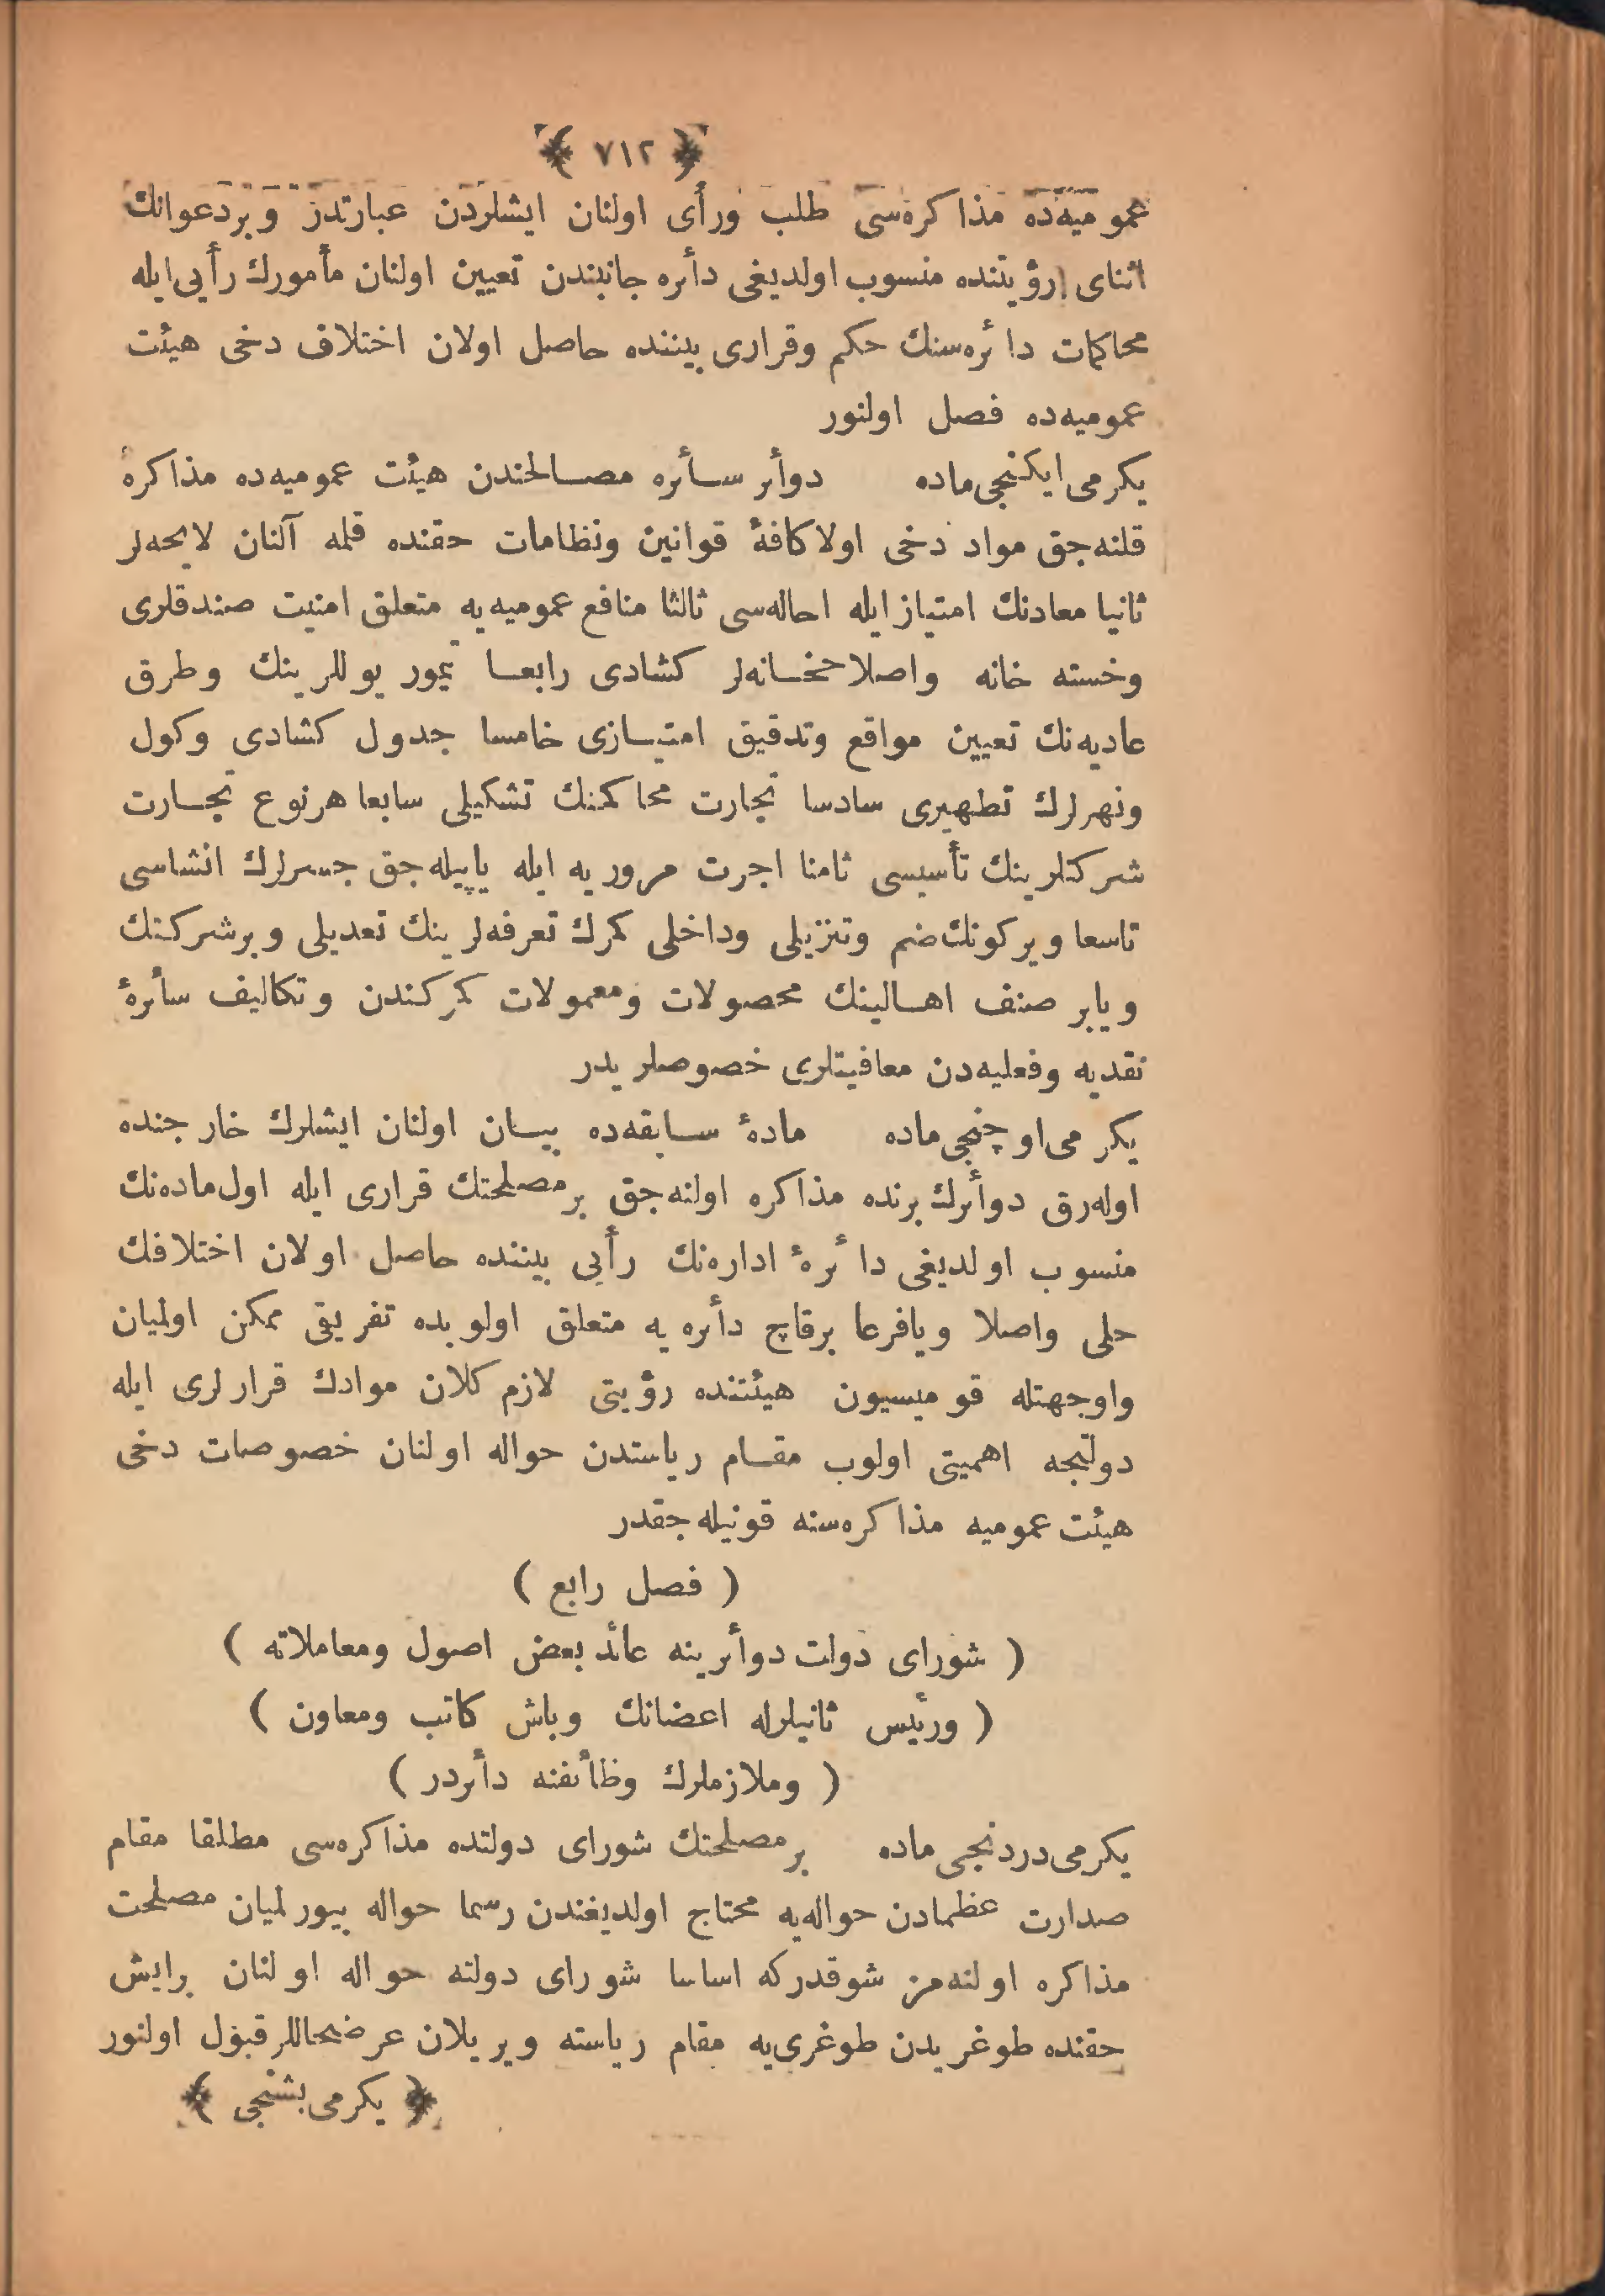 ﴿ ٧١٢ ﴾
عموميه‌ده مذاكره‌سى طلب ورأى اولنان ايشلردن عبارتدر وبردعوانك
اثناى رؤيتنده منسوب اولديغى دأره جانبندن تعيين اولنان مأمورك رأيى ايله
محاكمات دائره‌سنك حكم وقرارى بيننده حاصل اولان اختلاف دخى هيئت
عموميه‌ده فصل اولنور
يكرمى ايكنجى ماده دوأر سأره مصالحندن هيئت عموميه‌ده مذاكره
قلنه‌جق مواد دخى اولا كافهٔ قوانين ونظامات حقنده قلمه آلنان لايحه‌لر
ثانيا معادنك امتياز ايله احاله‌سى ثالثا منافع عموميه‌يه متعلق امنيت صندقلرى
وخسته خانه واصلاحخانه‌لر كشادى رابعا تيمور يوللرينك وطرق
عاديه‌نك تعيين مواقع وتدقيق امتيازى خامسا جدول كشادى وكول
ونهرلرك تطهيرى سادسا تجارت محاكمنك تشكيلى سابعا هرنوع تجارت
شركتلرينك تأسيسى ثامنا اجرت مروريه ايله ياپيله‌جق جسرلرك انشاسى
تاسعا ويركونك ضم وتنزيلى وداخلى كمرك تعرفه‌لرينك تعديلى وبرشركتك
ويابر صنف اهالينك محصولات ومعمولات كمركندن وتكاليف سأرهٔ
نقديه وفعليه‌دن معافيتلرى خصوصلريدر
يكرمى اوچنجى ماده مادهٔ سابقه‌ده بيان اولنان ايشلرك خارجنده
اوله‌رق دوأرك برنده مذاكره اولنه‌جق برمصلحتك قرارى ايله اول ماده‌نك
منسوب اولديغى دائرهٔ اداره‌نك رأيى بيننده حاصل اولان اختلافك
حلى واصلا ويافرعا برقاچ دأره‌يه متعلق اولوبده تفريقى ممكن اولميان
واوجهتله قوميسيون هيئتنده رؤيتى لازم كلان موادك قرارلرى ايله
دولتجه اهميتى اولوب مقام رياستدن حواله اولنان خصوصات دخى
هيئت عموميه مذاكره‌سنه قونيله‌جقدر
( فصل رابع )
( شوراى دولت دوأرينه عائد بعض اصول ومعاملاته )
( ورئيس ثانيلرله اعضانك وباش كاتب ومعاون )
( وملازملرك وظأفنه دأردر )
يكرمى دردنجى ماده برمصلحتك شوراى دولتده مذاكره‌سى مطلقا مقام
صدارت عظمادن حواله‌يه محتاج اولديغندن رسما حواله بيورلميان مصلحت
مذاكره اولنه‌مز شوقدركه اساسا شوراى دولته حواله اولنان برايش
حقنده طوغريدن طوغرى‌يه مقام رياسته ويريلان عرضحاللر قبول اولنور
﴿ يكرمى بشنجى ﴾